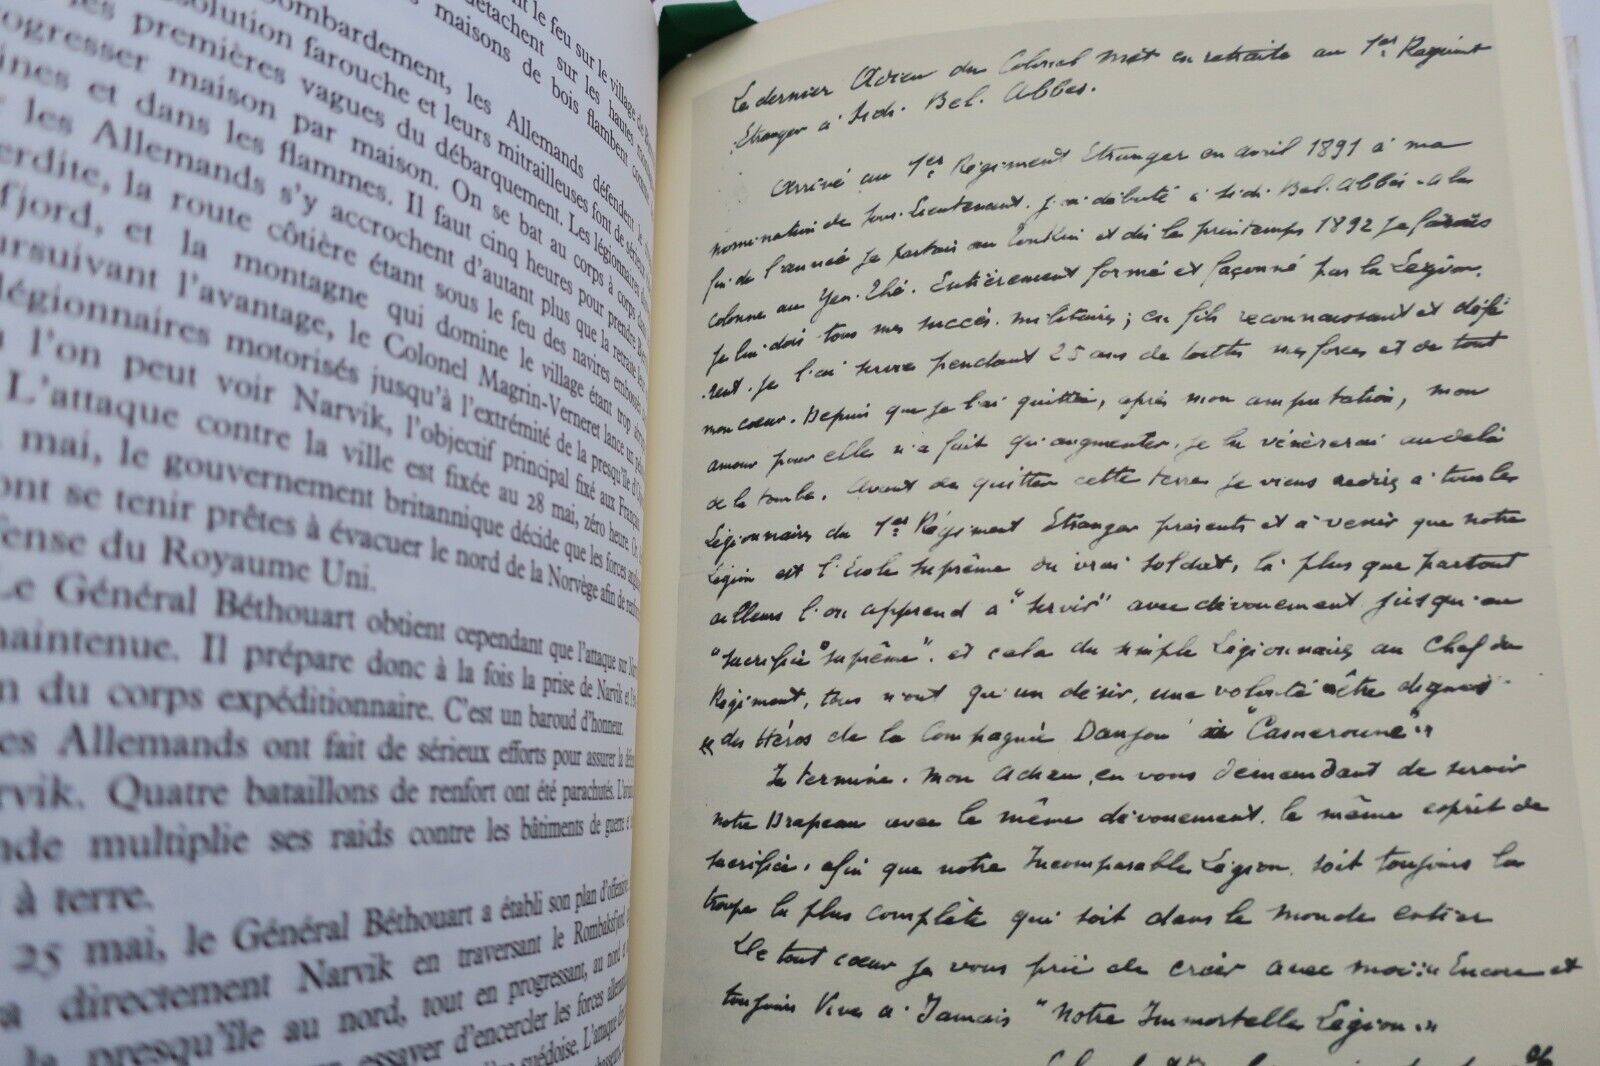 nt le feu sur le village de
détachent sur les hautes
ombardement, les maisons de bois flambent
solution farouche et leurs mitrailleuses font de
les premières vagues du débarquement. Les légionnaires
ogresser maison par maison. On se bat au corps à corps dans
ines et dans les flammes. Il faut cinq heures pour prendre
les Allemands s'y accrochent d'autant plus que la retraite
erdite, la route côtière étant sous le feu des navires embossés
fjord, et la montagne qui domine le village étant trop
ursuivant l'avantage, le Colonel Magrin-Verneret lance un
légionnaires motorisés jusqu'à l'extrémité de la presqu'île d'
l'on peut voir Narvik, l'objectif principal fixé aux Français
L'attaque contre la ville est fixée au 28 mai, zéro heure.
mai, le gouvernement britannique décide que les forces
ont se tenir prêtes à évacuer le nord de la Norvège afin de
fense du Royaume Uni.
Le Général Béthouart obtient cependant que l'attaque sur
maintenue. Il prépare donc à la fois la prise de Narvik et
n du corps expéditionnaire. C'est un baroud d'honneur.
es Allemands ont fait de sérieux efforts pour assurer la
rvik. Quatre bataillons de renfort ont été parachutés.
nde multiplie ses raids contre les bâtiments de guerre
à terre.
25 mai, le Général Béthouart a établi son plan d'offensive
a directement Narvik en traversant le Rombaksfjord
la presqu'île au nord, tout en progressant, au nord
essayer d'encercler les forces
suédoise. L'attaque
Le dernier Adieu du Colonel Mset en retraite au 1er Régiment
Etranger à Sidi. Bel. Abbes.
Arrivé au 1er Régiment Etranger en avril 1891 à ma
nomination de Sous-Lieutenant. J'ai débuté à Sidi. Bel. Abbés. A la
fin de l'année je partais au Tonkin et dès le printemps 1892 je faisais
colonne au Yen. Thé. Entièrement formé et façonné par la Légion.
je lui dois tous mes succès militaires; en fils reconnaissant et défé
rent. je l'ai servie pendant 25 ans de toutes mes forces et de tout
mon cœur. Depuis que je l'ai quittée, après mon amputation, mon
amour pour elle n'a fait qu'augmenter. je la vénèrerai au delà
de la tombe. Avant de quitter cette terre je viens redire à tous les
Légionnaires du 1er Régiment Etranger présents et à venir que notre
Légion est l'École suprême du vrai soldat, là plus que partout
ailleurs l'on apprend à "servir" avec dévouement jusqu'au
"sacrifice" suprême". et cela du simple Légionnaire au Chef du
Régiment, tous n'ont qu'un désir, une volonté être dignes
"des Héros de la Compagnie Danjou à "Camerone"..
Je termine. mon Adieu, en vous demandant de servir
notre Drapeau avec le même dévouement. le même esprit de
sacrifice, afin que notre Incomparable Légion. soit toujours la
troupe la plus complète qui soit dans le monde entier
De tout cœur je vous prie de crier avec moi: Encore et
toujours Vive à Jamais "Notre Immortelle Légion"